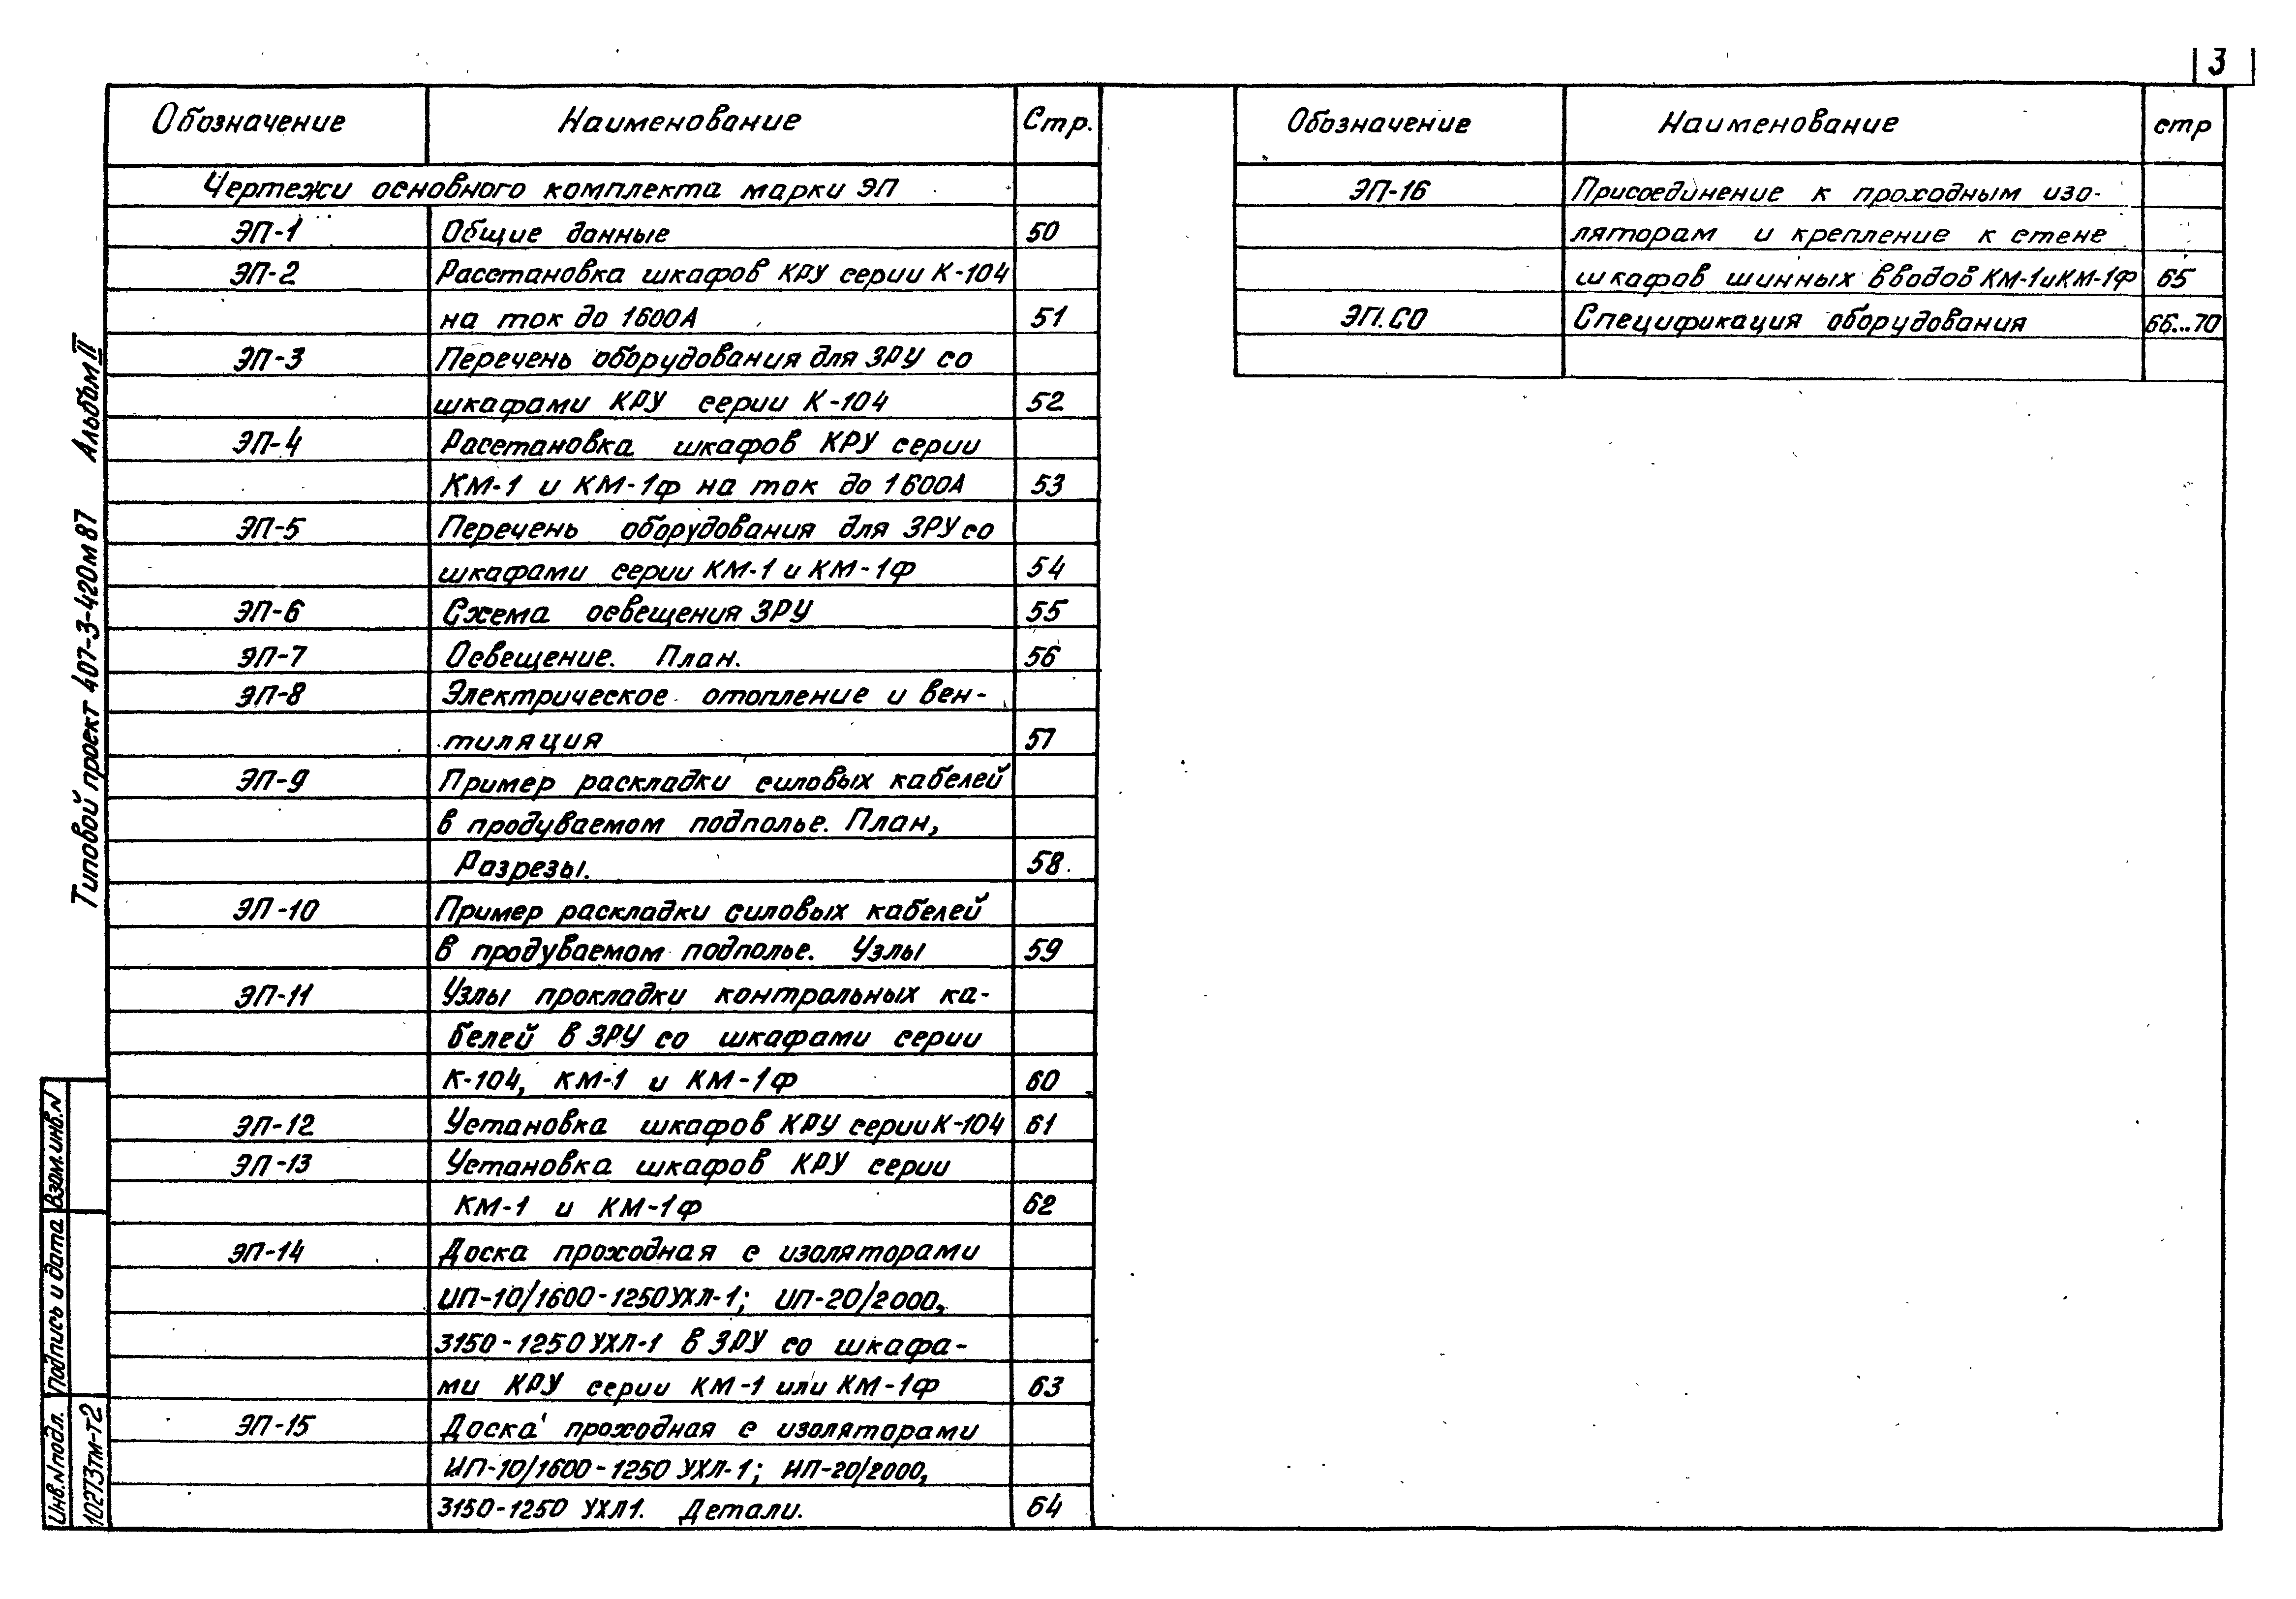 3
Обозначение Наименование Стр.
Чертежи основного комплекта марки ЭП
ЭП-1 Общие данные 50
ЭП-2 Расстановка шкафов КРУ серии К-104
на ток до 1600А 51
ЭП-3 Перечень оборудования для ЗРУ со
шкафами КРУ серии К-104 52
ЭП-4 Расстановка шкафов КРУ серии
КМ-1 и КМ-1ф на ток до 1600А 53
ЭП-5 Перечень оборудования для ЗРУ со
шкафами серии КМ-1 и КМ-1ф 54
ЭП-6 Схема освещения ЗРУ 55
ЭП-7 Освещение. План. 56
ЭП-8 Электрическое отопление и вен-
тиляция 57
ЭП-9 Пример раскладки силовых кабелей
в продуваемом подполье. План,
Разрезы. 58
ЭП-10 Пример раскладки силовых кабелей
в продуваемом подполье. Узлы 59
ЭП-11 Узлы прокладки контрольных ка-
белей в ЗРУ со шкафами серии
К-104, КМ-1 и КМ-1ф 60
ЭП-12 Установка шкафов КРУ серии К-104 61
ЭП-13 Установка шкафов КРУ серии
КМ-1 и КМ-1ф 62
ЭП-14 Доска проходная с изоляторами
ИП-10/1600-1250УХЛ-1; ИП-20/2000,
3150-1250УХЛ-1 в ЗРУ со шкафа-
ми КРУ серии КМ-1 или КМ-1ф 63
ЭП-15 Доска проходная с изоляторами
ИП-10/1600-1250 УХЛ-1; ИП-20/2000,
3150-1250 УХЛ1. Детали. 64
Обозначение Наименование стр
ЭП-16 Присоединение к проходным изо-
ляторам и крепление к стене
шкафов шинных вводов КМ-1 и КМ-1ф 65
ЭП.СО Спецификация оборудования 66...70
Типовой проект 407-3-420м87 Альбом II
Взам.инв.N
Подпись и дата
Инв.N подл.
10273тм-т2